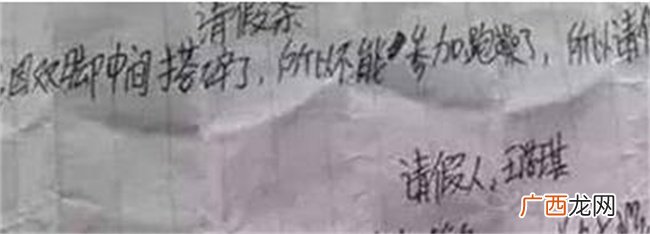 请假条
因双脚中间搭碎了，所以不能参加跑操了，所以请
请假人：王
广西龙网